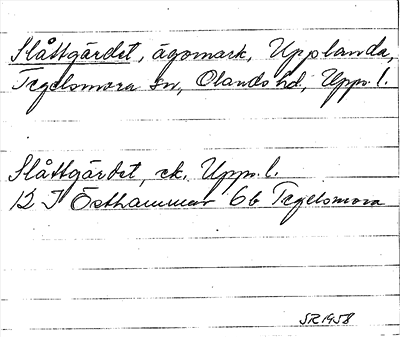 Slåttgärdet, ägomark, Upplanda,
Tegelsmora sn, Olands hd, Upps. l.
Slåttgärdet, ek. Upps. l.
12 I Östhammar 6b Tegelsmora
SR 1958